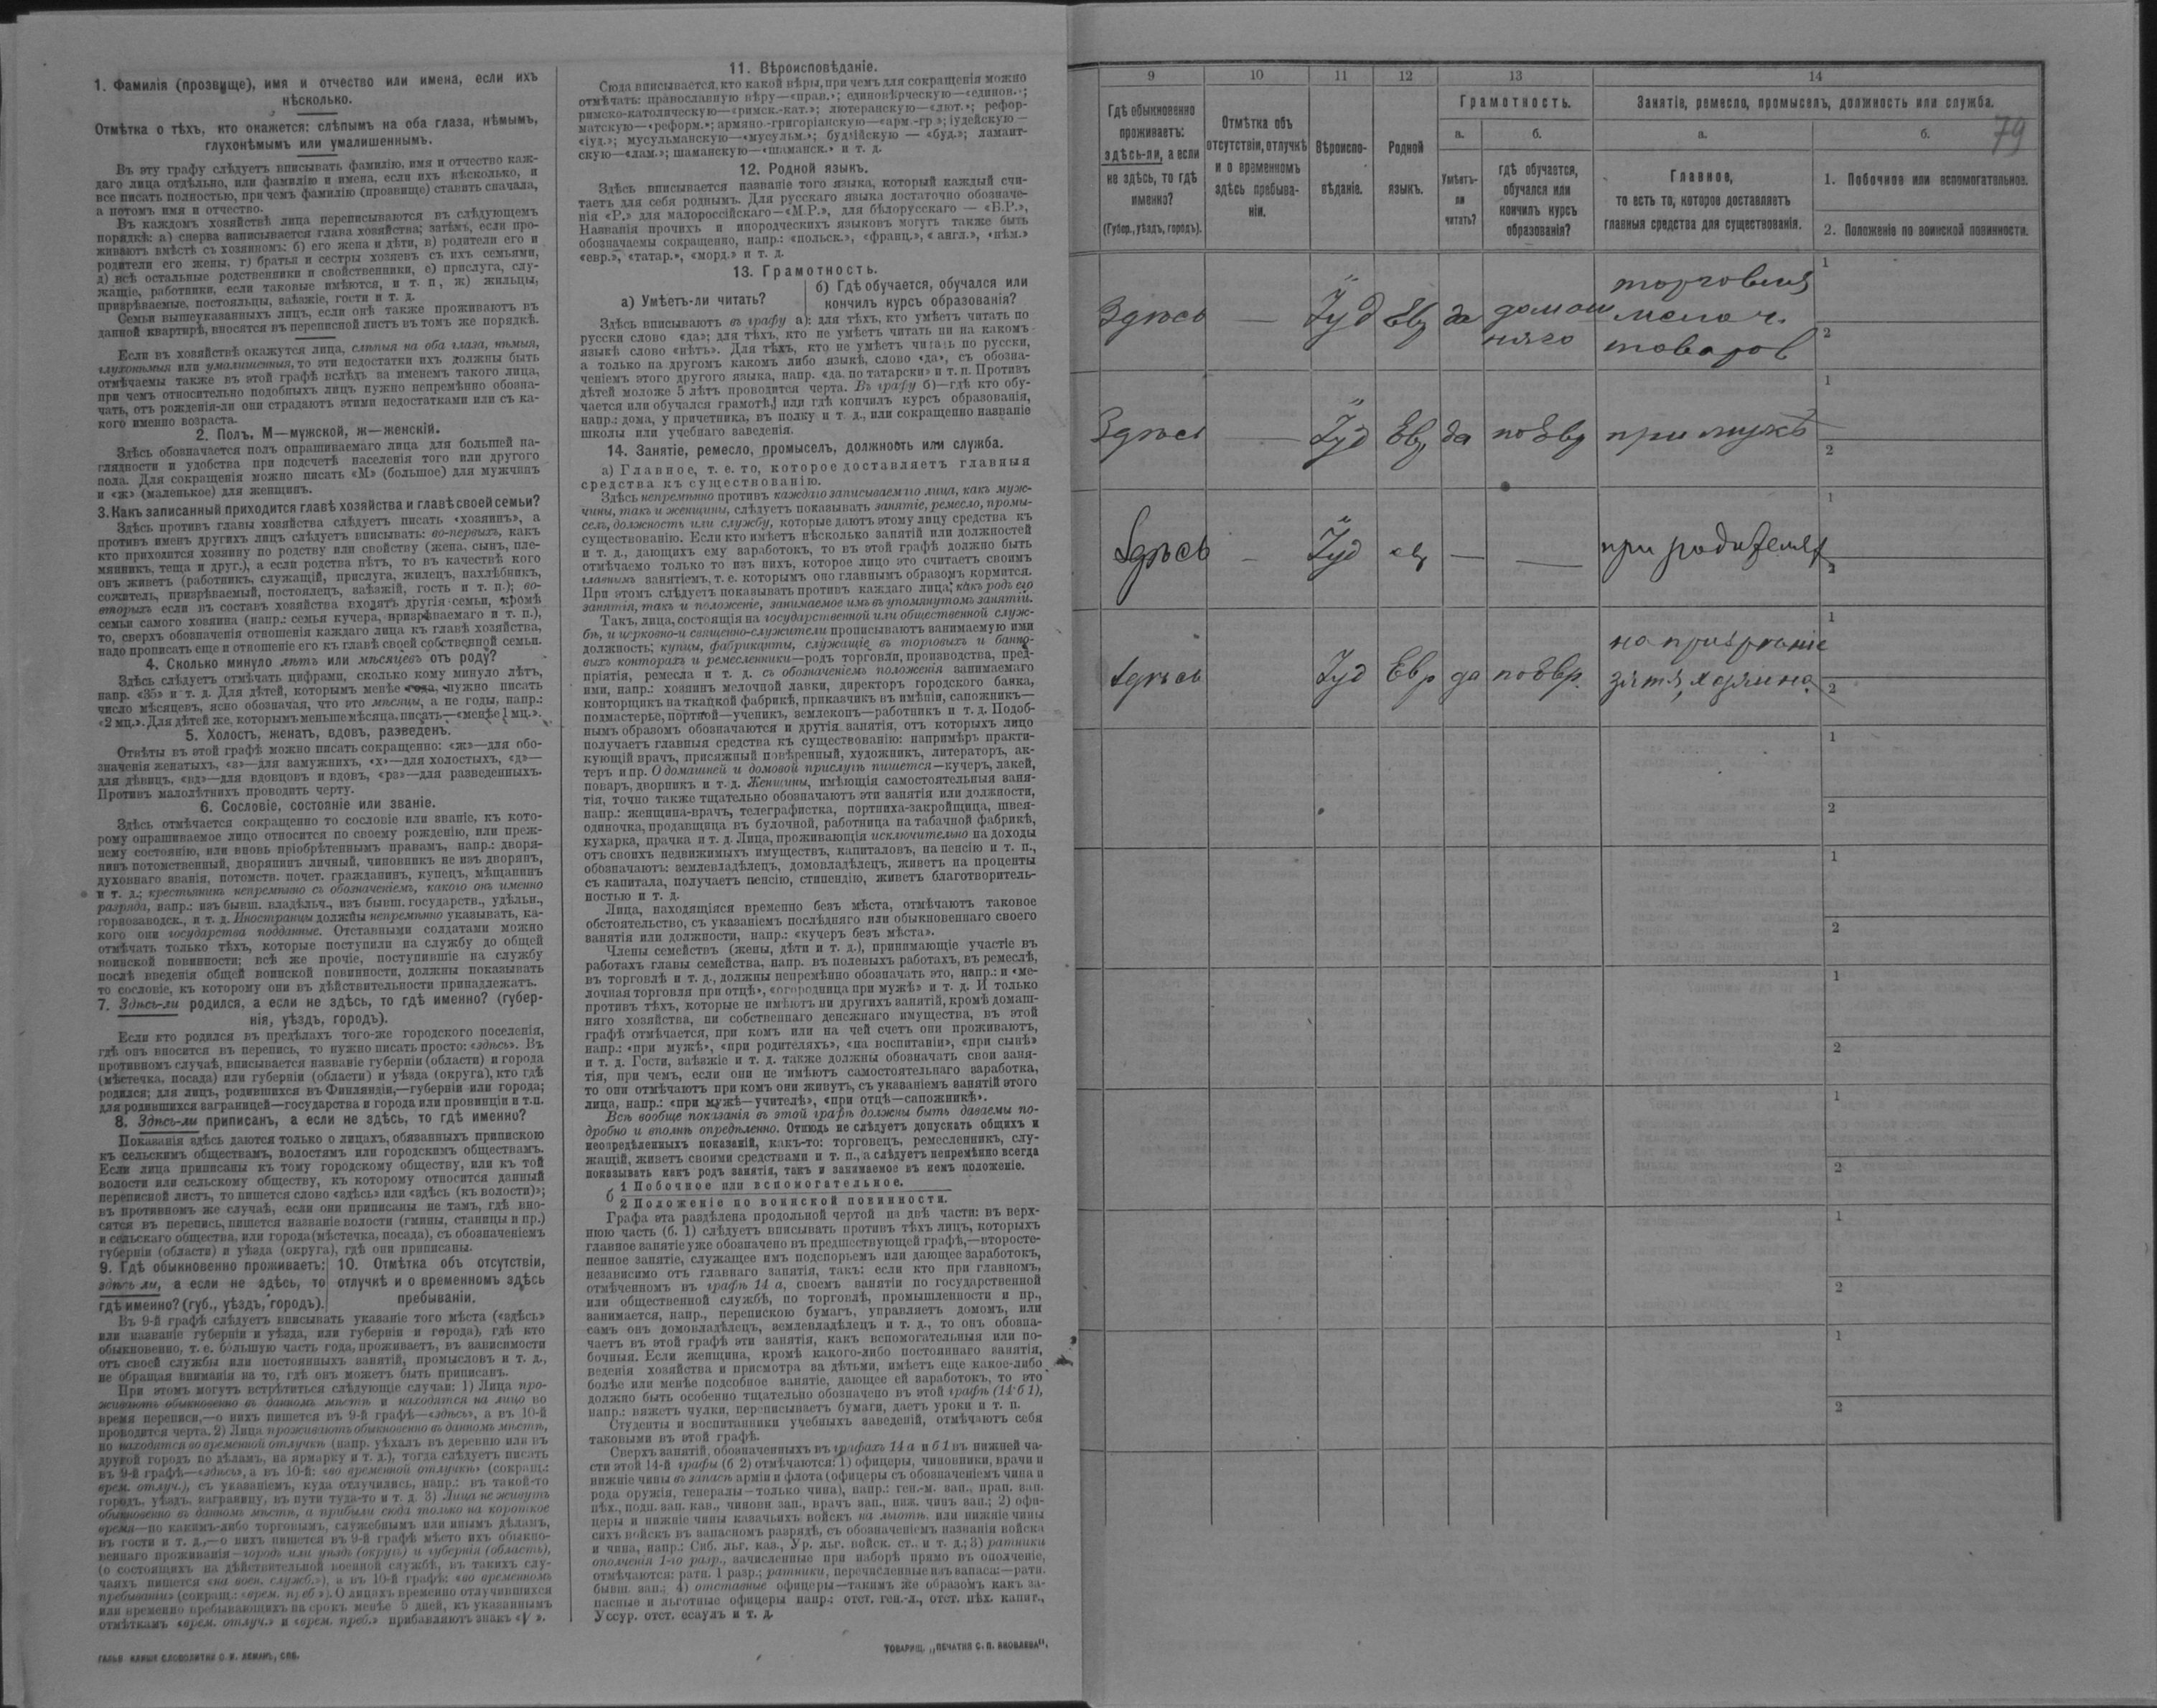 1. Фамилія (прозвище), имя и отчество или имена, если ихъ
нѣсколько.
Отмѣтка о тѣхъ, кто окажется: слѣпымъ на оба глаза, нѣмымъ,
глухонѣмымъ или умалишеннымъ.
Въ эту графу слѣдуетъ вписывать фамилію, имя и отчество каж-
даго лица отдѣльно, или фамилію и имена, если ихъ нѣсколько, и
все писать полностью, при чемъ фамилію (прозвище) ставить сначала,
а потомъ имя и отчество.
Въ каждомъ хозяйствѣ лица переписываются въ слѣдующемъ
порядкѣ: а) сперва записывается глава хозяйства; затѣмъ, если про-
живаютъ вмѣстѣ съ хозяиномъ: б) его жена и дѣти, в) родители его и
родители его жены, г) братья и сестры хозяевъ съ ихъ семьями,
д) всѣ остальные родственники и свойственники, е) прислуга, слу-
жащіе, работники, если таковые имѣются, и т. п., ж) жильцы,
призрѣваемые, постояльцы, заѣзжіе, гости и т. д.
Семьи вышеуказанныхъ лицъ, если онѣ также проживаютъ въ
данной квартирѣ, вносятся въ переписной листъ въ томъ же порядкѣ.
Если въ хозяйствѣ окажутся лица, слѣпыя на оба глаза, нѣмыя,
глухонѣмыя или умалишенныя, то эти недостатки ихъ должны быть
отмѣчаемы также въ этой графѣ вслѣдъ за именемъ такого лица,
при чемъ относительно подобныхъ лицъ нужно непремѣнно обозна-
чать, отъ рожденія-ли они страдаютъ этими недостатками или съ ка-
кого именно возраста.
2. Полъ. М—мужской, ж—женскій.
Здѣсь обозначается полъ опрашиваемаго лица для большей на-
глядности и удобства при подсчетѣ населенія того или другого
пола. Для сокращенія можно писать «М» (большое) для мужчинъ
и «ж» (маленькое) для женщинъ.
3. Какъ записанный приходится главѣ хозяйства и главѣ своей семьи?
Здѣсь противъ главы хозяйства слѣдуетъ писать «хозяинъ», а
противъ именъ другихъ лицъ слѣдуетъ вписывать: во-первыхъ, какъ
кто приходится хозяину по родству или свойству (жена, сынъ, пле-
мянникъ, теща и друг.), а если родства нѣтъ, то въ качествѣ кого
онъ живетъ (работникъ, служащій, прислуга, жилецъ, нахлѣбникъ,
сожитель, призрѣваемый, постоялецъ, заѣзжій, гость и т. п.); во-
вторыхъ если въ составъ хозяйства входятъ другія семьи, кромѣ
семьи самого хозяина (напр.: семья кучера, призрѣваемаго и т. п.),
то, сверхъ обозначенія отношенія каждаго лица къ главѣ хозяйства,
надо прописать еще и отношеніе его къ главѣ своей собственной семьи.
4. Сколько минуло лѣтъ или мѣсяцевъ отъ роду?
Здѣсь слѣдуетъ отмѣчать цифрами, сколько кому минуло лѣтъ,
напр. «35» и т. д. Для дѣтей, которымъ менѣе года, нужно писать
число мѣсяцевъ, ясно обозначая, что это мѣсяцы, а не годы, напр.:
«2 мц.». Для дѣтей же, которымъ меньше мѣсяца, писать—«менѣе 1 мц.».
5. Холостъ, женатъ, вдовъ, разведенъ.
Отвѣты въ этой графѣ можно писать сокращенно: «ж»—для обо-
значенія женатыхъ, «з»—для замужнихъ, «х»—для холостыхъ, «д»—
для дѣвицъ, «вд»—для вдовцовъ и вдовъ, «рз»—для разведенныхъ.
Противъ малолѣтнихъ проводить черту.
6. Сословіе, состояніе или званіе.
Здѣсь отмѣчается сокращенно то сословіе или званіе, къ кото-
рому опрашиваемое лицо относится по своему рожденію, или преж-
нему состоянію, или вновь пріобрѣтеннымъ правамъ, напр.: дворя-
нинъ потомственный, дворянинъ личный, чиновникъ не изъ дворянъ,
духовнаго званія, потомств. почет. гражданинъ, купецъ, мѣщанинъ
и т. д.; крестьянинъ непремѣнно съ обозначеніемъ, какого онъ именно
разряда, напр.: изъ бывш. владѣльч., изъ бывш. государств., удѣльн.,
горнозаводск., и т. д. Иностранцы должны непремѣнно указывать, ка-
кого они государства подданные. Отставными солдатами можно
отмѣчать только тѣхъ, которые поступили на службу до общей
воинской повинности; всѣ же прочіе, поступившіе на службу
послѣ введенія общей воинской повинности, должны показывать
то сословіе, къ которому они въ дѣйствительности принадлежатъ.
7. Здѣсь-ли родился, а если не здѣсь, то гдѣ именно? (губер-
нія, уѣздъ, городъ).
Если кто родился въ предѣлахъ того-же городского поселенія,
гдѣ онъ вносится въ перепись, то нужно писать просто: «здѣсь». Въ
противномъ случаѣ, вписывается названіе губерніи (области) и города
(мѣстечка, посада) или губерніи (области) и уѣзда (округа), кто гдѣ
родился; для лицъ, родившихся въ Финляндіи,—губерніи или города;
для родившихся заграницей—государства и города или провинціи и т.п.
8. Здѣсь-ли приписанъ, а если не здѣсь, то гдѣ именно?
Показанія здѣсь даются только о лицахъ, обязанныхъ припискою
къ сельскимъ обществамъ, волостямъ или городскимъ обществамъ.
Если лица приписаны къ тому городскому обществу, или къ той
волости или сельскому обществу, къ которому относится данный
переписной листъ, то пишется слово «здѣсь» или «здѣсь (къ волости)»;
въ противномъ же случаѣ, если они приписаны не тамъ, гдѣ вно-
сятся въ перепись, пишется названіе волости (гмины, станицы и пр.)
и сельскаго общества, или города (мѣстечка, посада), съ обозначеніемъ
губерніи (области) и уѣзда (округа), гдѣ они приписаны.
9. Гдѣ обыкновенно проживаетъ:
здѣсь ли, а если не здѣсь, то
гдѣ именно? (губ., уѣздъ, городъ).
10. Отмѣтка объ отсутствіи,
отлучкѣ и о временномъ здѣсь
пребываніи.
Въ 9-й графѣ слѣдуетъ вписывать указаніе того мѣста («здѣсь»
или названіе губерніи и уѣзда, или губерніи и города), гдѣ кто
обыкновенно, т. е. большую часть года, проживаетъ, въ зависимости
отъ своей службы или постоянныхъ занятій, промысловъ и т. д.,
не обращая вниманія на то, гдѣ онъ можетъ быть приписанъ.
При этомъ могутъ встрѣтиться слѣдующіе случаи: 1) Лица про-
живаютъ обыкновенно въ данномъ мѣстѣ и находятся на лицо во
время переписи,—о нихъ пишется въ 9-й графѣ—«здѣсь», а въ 10-й
проводится черта. 2) Лица проживаютъ обыкновенно въ данномъ мѣстѣ,
но находятся во временной отлучкѣ (напр. уѣхалъ въ деревню или въ
другой городъ по дѣламъ, на ярмарку и т. д.), тогда слѣдуетъ писать
въ 9-й графѣ—«здѣсь», а въ 10-й: «во временной отлучкѣ» (сокращ.:
врем. отлуч.), съ указаніемъ, куда отлучились, напр.: въ такой-то
городъ, уѣздъ, заграницу, въ пути туда-то и т. д. 3) Лица не живутъ
обыкновенно въ данномъ мѣстѣ, а прибыли сюда только на короткое
время—по какимъ-либо торговымъ, служебнымъ или инымъ дѣламъ,
въ гости и т. д.,—о нихъ пишется въ 9-й графѣ мѣсто ихъ обыкно-
веннаго проживанія—городъ или уѣздъ (округъ) и губернія (область),
(о состоящихъ на дѣйствительной военной службѣ, въ такихъ слу-
чаяхъ пишется «на воен. служб.»), а въ 10-й графѣ: «во временномъ
пребываніи» (сокращ.: «врем. преб.»). О лицахъ временно отлучившихся
или временно пребывающихъ на срокъ менѣе 5 дней, къ указаннымъ
отмѣткамъ «врем. отлуч.» и «врем. преб.» прибавляютъ знакъ «V».
11. Вѣроисповѣданіе.
Сюда вписывается, кто какой вѣры, при чемъ для сокращенія можно
отмѣчать: православную вѣру—«прав.»; единовѣрческую—«единов.»;
римско-католическую—«римск.-кат.»; лютеранскую—«лют.»; рефор-
матскую—«реформ.»; армяно-григоріанскую—«арм.-гр»; іудейскую—
«іуд.»; мусульманскую—«мусульм.»; буддійскую — «буд.»; ламаит-
скую—«лам.»; шаманскую—«шаманск.» и т. д.
12. Родной языкъ.
Здѣсь вписывается названіе того языка, который каждый счи-
таетъ для себя роднымъ. Для русскаго языка достаточно обозначе-
нія «Р.» для малороссійскаго—«М.Р.», для бѣлорусскаго — «Б.Р.»,
Названія прочихъ и инородческихъ языковъ могутъ также быть
обозначаемы сокращенно, напр.: «польск.», «франц.», «англ.», «нѣм.»
«евр.», «татар.», «морд.» и т. д.
13. Грамотность.
а) Умѣетъ-ли читать?
б) Гдѣ обучается, обучался или
кончилъ курсъ образованія?
Здѣсь вписываютъ въ графу а): для тѣхъ, кто умѣетъ читать по
русски слово «да»; для тѣхъ, кто не умѣетъ читать ни на какомъ
языкѣ слово «нѣтъ». Для тѣхъ, кто не умѣетъ читать по русски,
а только на другомъ какомъ либо языкѣ, слово «да», съ обозна-
ченіемъ этого другого языка, напр. «да. по татарски» и т. п. Противъ
дѣтей моложе 5 лѣтъ проводится черта. Въ графу б)—гдѣ кто обу-
чается или обучался грамотѣ, или гдѣ кончилъ курсъ образованія,
напр.: дома, у причетника, въ полку и т. д., или сокращенно названіе
школы или учебнаго заведенія.
14. Занятіе, ремесло, промыселъ, должность или служба.
а) Главное, т. е. то, которое доставляетъ главныя
средства къ существованію.
Здѣсь непремѣнно противъ каждаго записываемаго лица, какъ муж-
чины, такъ и женщины, слѣдуетъ показывать занятіе, ремесло, промы-
селъ, должность или службу, которые даютъ этому лицу средства къ
существованію. Если кто имѣетъ нѣсколько занятій или должностей
и т. д., дающихъ ему заработокъ, то въ этой графѣ должно быть
отмѣчаемо только то изъ нихъ, которое лицо это считаетъ своимъ
главнымъ занятіемъ, т. е. которымъ оно главнымъ образомъ кормится.
При этомъ слѣдуетъ показывать противъ каждаго лица, какъ родъ его
занятія, такъ и положеніе, занимаемое имъ въ упомянутомъ занятіи.
Такъ, лица, состоящія на государственной или общественной служ-
бѣ, и церковно-и священно-служители прописываютъ занимаемую ими
должность; купцы, фабриканты, служащіе въ торговыхъ и банко-
выхъ конторахъ и ремесленники—родъ торговли, производства, пред-
пріятія, ремесла и т. д. съ обозначеніемъ положенія занимаемаго
ими, напр.: хозяинъ мелочной лавки, директоръ городского банка,
конторщикъ на ткацкой фабрикѣ, приказчикъ въ имѣніи, сапожникъ—
подмастерье, портной—ученикъ, землекопъ—работникъ и т. д. Подоб-
нымъ образомъ обозначаются и другія занятія, отъ которыхъ лицо
получаетъ главныя средства къ существованію: напримѣръ практи-
кующій врачъ, присяжный повѣренный, художникъ, литераторъ, ак-
теръ и пр. О домашней и домовой прислугѣ пишется—кучеръ, лакей,
поваръ, дворникъ и т. д. Женщины, имѣющія самостоятельныя заня-
тія, точно также тщательно обозначаютъ эти занятія или должности,
напр.: женщина-врачъ, телеграфистка, портниха-закройщица, швея-
одиночка, продавщица въ булочной, работница на табачной фабрикѣ,
кухарка, прачка и т. д. Лица, проживающія исключительно на доходы
отъ своихъ недвижимыхъ имуществъ, капиталовъ, на пенсію и т. п.,
обозначаютъ: землевладѣлецъ, домовладѣлецъ, живетъ на проценты
съ капитала, получаетъ пенсію, стипендію, живетъ благотворитель-
ностью и т. д.
Лица, находящіяся временно безъ мѣста, отмѣчаютъ таковое
обстоятельство, съ указаніемъ послѣдняго или обыкновеннаго своего
занятія или должности, напр.: «кучеръ безъ мѣста».
Члены семействъ (жены, дѣти и т. д.), принимающіе участіе въ
работахъ главы семейства, напр. въ полевыхъ работахъ, въ ремеслѣ,
въ торговлѣ и т. д., должны непремѣнно обозначать это, напр.: и «ме-
лочная торговля при отцѣ», «огородница при мужѣ» и т. д. И только
противъ тѣхъ, которые не имѣютъ ни другихъ занятій, кромѣ домаш-
няго хозяйства, ни собственнаго денежнаго имущества, въ этой
графѣ отмѣчается, при комъ или на чей счетъ они проживаютъ,
напр.: «при мужѣ», «при родителяхъ», «на воспитаніи», «при сынѣ»
и т. д. Гости, заѣзжіе и т. д. также должны обозначать свои заня-
тія, при чемъ, если они не имѣютъ самостоятельнаго заработка,
то они отмѣчаютъ при комъ они живутъ, съ указаніемъ занятій этого
лица, напр.: «при мужѣ—учителѣ», «при отцѣ—сапожникѣ».
Всѣ вообще показанія въ этой графѣ должны быть даваемы по-
дробно и вполнѣ опредѣленно. Отнюдь не слѣдуетъ допускать общихъ и
неопредѣленныхъ показаній, какъ-то: торговецъ, ремесленникъ, слу-
жащій, живетъ своими средствами и т. п., а слѣдуетъ непремѣнно всегда
показывать какъ родъ занятія, такъ и занимаемое въ немъ положеніе.
б 1 Побочное или вспомогательное.
2 Положеніе по воинской повинности.
Графа эта раздѣлена продольной чертой на двѣ части: въ верх-
нюю часть (б. 1) слѣдуетъ вписывать противъ тѣхъ лицъ, которыхъ
главное занятіе уже обозначено въ предшествующей графѣ,—второсте-
пенное занятіе, служащее имъ подспорьемъ или дающее заработокъ,
независимо отъ главнаго занятія, такъ: если кто при главномъ,
отмѣченномъ въ графѣ 14 а, своемъ занятіи по государственной
или общественной службѣ, по торговлѣ, промышленности и пр.,
занимается, напр., перепискою бумагъ, управляетъ домомъ, или
самъ онъ домовладѣлецъ, землевладѣлецъ и т. д., то онъ обозна-
чаетъ въ этой графѣ эти занятія, какъ вспомогательныя или по-
бочныя. Если женщина, кромѣ какого-либо постояннаго занятія,
веденія хозяйства и присмотра за дѣтьми, имѣетъ еще какое-либо
болѣе или менѣе подсобное занятіе, дающее ей заработокъ, то это
должно быть особенно тщательно обозначено въ этой графѣ (14 б 1),
напр.: вяжетъ чулки, переписываетъ бумаги, даетъ уроки и т. п.
Студенты и воспитанники учебныхъ заведеній, отмѣчаютъ себя
таковыми въ этой графѣ.
Сверхъ занятій, обозначенныхъ въ графахъ 14 а и б 1 въ нижней ча-
сти этой 14-й графы (б 2) отмѣчаются: 1) офицеры, чиновники, врачи и
нижніе чины въ запасѣ арміи и флота (офицеры съ обозначеніемъ чина и
рода оружія, генералы—только чина), напр.: ген.-м. зап., прап. зап.
пѣх., подп. зап. кав., чиновн. зап., врачъ зап., ниж. чинъ зап.; 2) офи-
церы и нижніе чины казачьихъ войскъ на льготѣ, или нижніе чины
сихъ войскъ въ запасномъ разрядѣ, съ обозначеніемъ названія войска
и чина, напр.: Сиб. льг. каз., Ур. льг. войск. ст., и т. д.; 3) ратники
ополченія 1-го разр., зачисленные при наборѣ прямо въ ополченіе,
отмѣчаются: ратн. 1 разр.; ратники, перечисленные изъ запаса:—ратн.
бывш. зап.; 4) отставные офицеры—такимъ же образомъ какъ за-
пасные и льготные офицеры напр.: отст. ген.-л., отст. пѣх. капит.,
Уссур. отст. есаулъ и т. д.
ТОВАРИЩ. „ПЕЧАТНЯ С. П. ЯКОВЛЕВА".
9 10 11 12 13 14
Гдѣ обыкновенно
проживаетъ:
здѣсь-ли, а если
не здѣсь, то гдѣ
именно?
(Губер., уѣздъ, городъ).
Отмѣтка объ
отсутствіи, отлучкѣ
и о временномъ
здѣсь пребыва-
ніи.
Вѣроиспо-
вѣданіе.
Родной
языкъ.
Грамотность.
а.
Умѣетъ-
ли
читать?
б.
гдѣ обучается,
обучался или
кончилъ курсъ
образованія?
Занятіе, ремесло, промыселъ, должность или служба.
79
а.
Главное,
то есть то, которое доставляетъ
главныя средства для существованія.
б.
1. Побочное или вспомогательное.
2. Положеніе по воинской повинности.
торговля 1
Здѣсь — Іуд Евр да домаш мелоч.
няго товаров 2
1
Здѣсь — Іуд Евр да по Евр при мужѣ
2
1
Здѣсь — Іуд евр — — при родителях
2
на призрѣніе 1
Здѣсь Іуд Евр да по Евр. зятя, хозяина 2
1
2
1
2
1
2
1
2
1
2
1
2